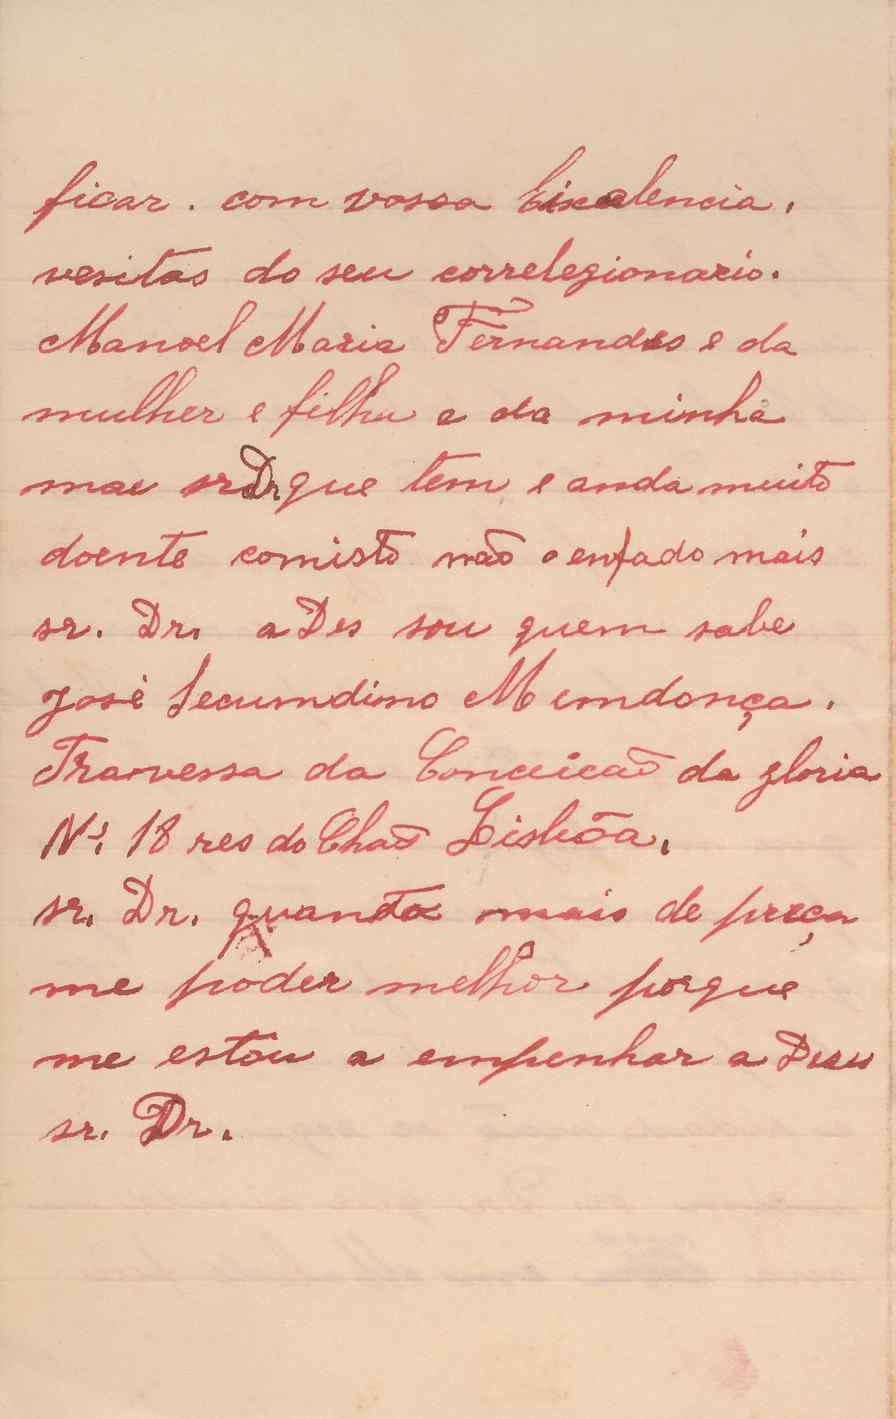 ficar. com vossa Eixalencia,
vesitas do seu correlegionario.
Manoel Maria Fernandes e da
mulher e filha e da minha
mae sr Dr que tem e anda muito
doente comisto não o enfado mais
sr. Dr. a Des sou quem sabe
José Secumdino Memdonça.
Travessa da Conceicaõ da gloria
Nº: 18 res do Chaõ Lisbõa,
sr. Dr. quanto mais de preça
me poder melhor porque
me estou a empenhar a Deus
sr. Dr.